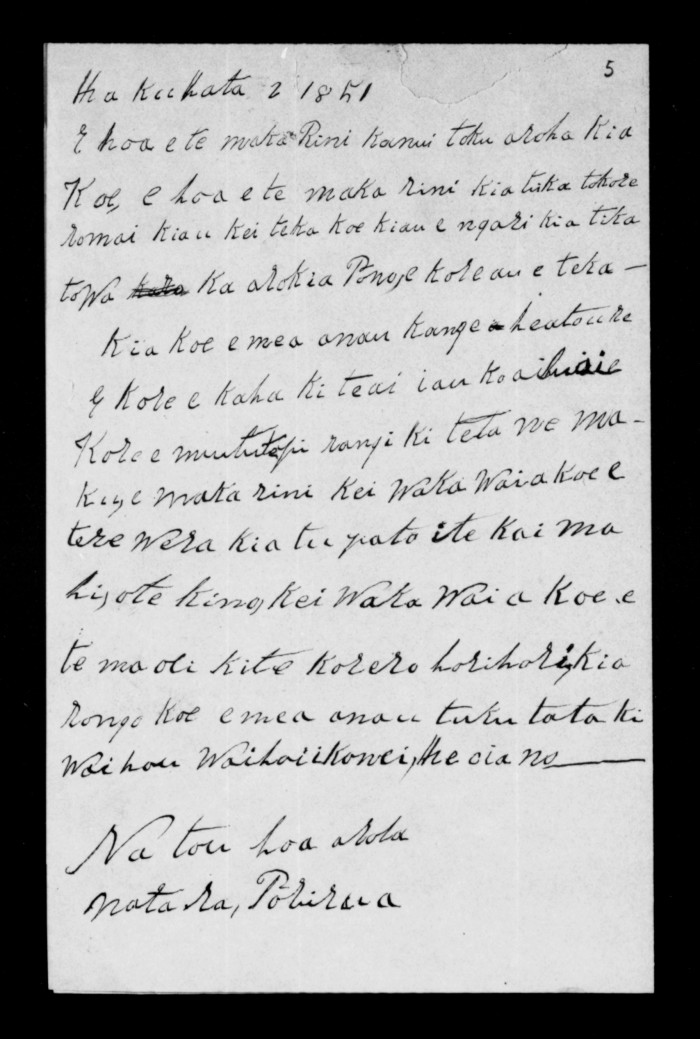 5
Ha Kuhata 2 1851
E hoa e te maka Rini kanui toku aroha Kia
Koe, e hoa e te maka rini kia tuka tokore
romai kiau kei teka koe kiau e ngari kia tika
to Wa Ka arokia Pono, e kore au e teka —
Kia Koe e mea anau kange a heatoure
E Kore e kaha ki teai iau ko
Kore e rangi ki teta we ma-
ki, e maka rini kei Waka Wai a koe e
tere wera kia tu pato i te kai ma
hi, ote king, kei Waka Wai a Koe e
te maoli kite korero horihori, kia
rongo koe e mea anau tuku tata ki
Waihou Waihoiikonei, He oia no
Na tou hoa aroha
Matara, Porirua